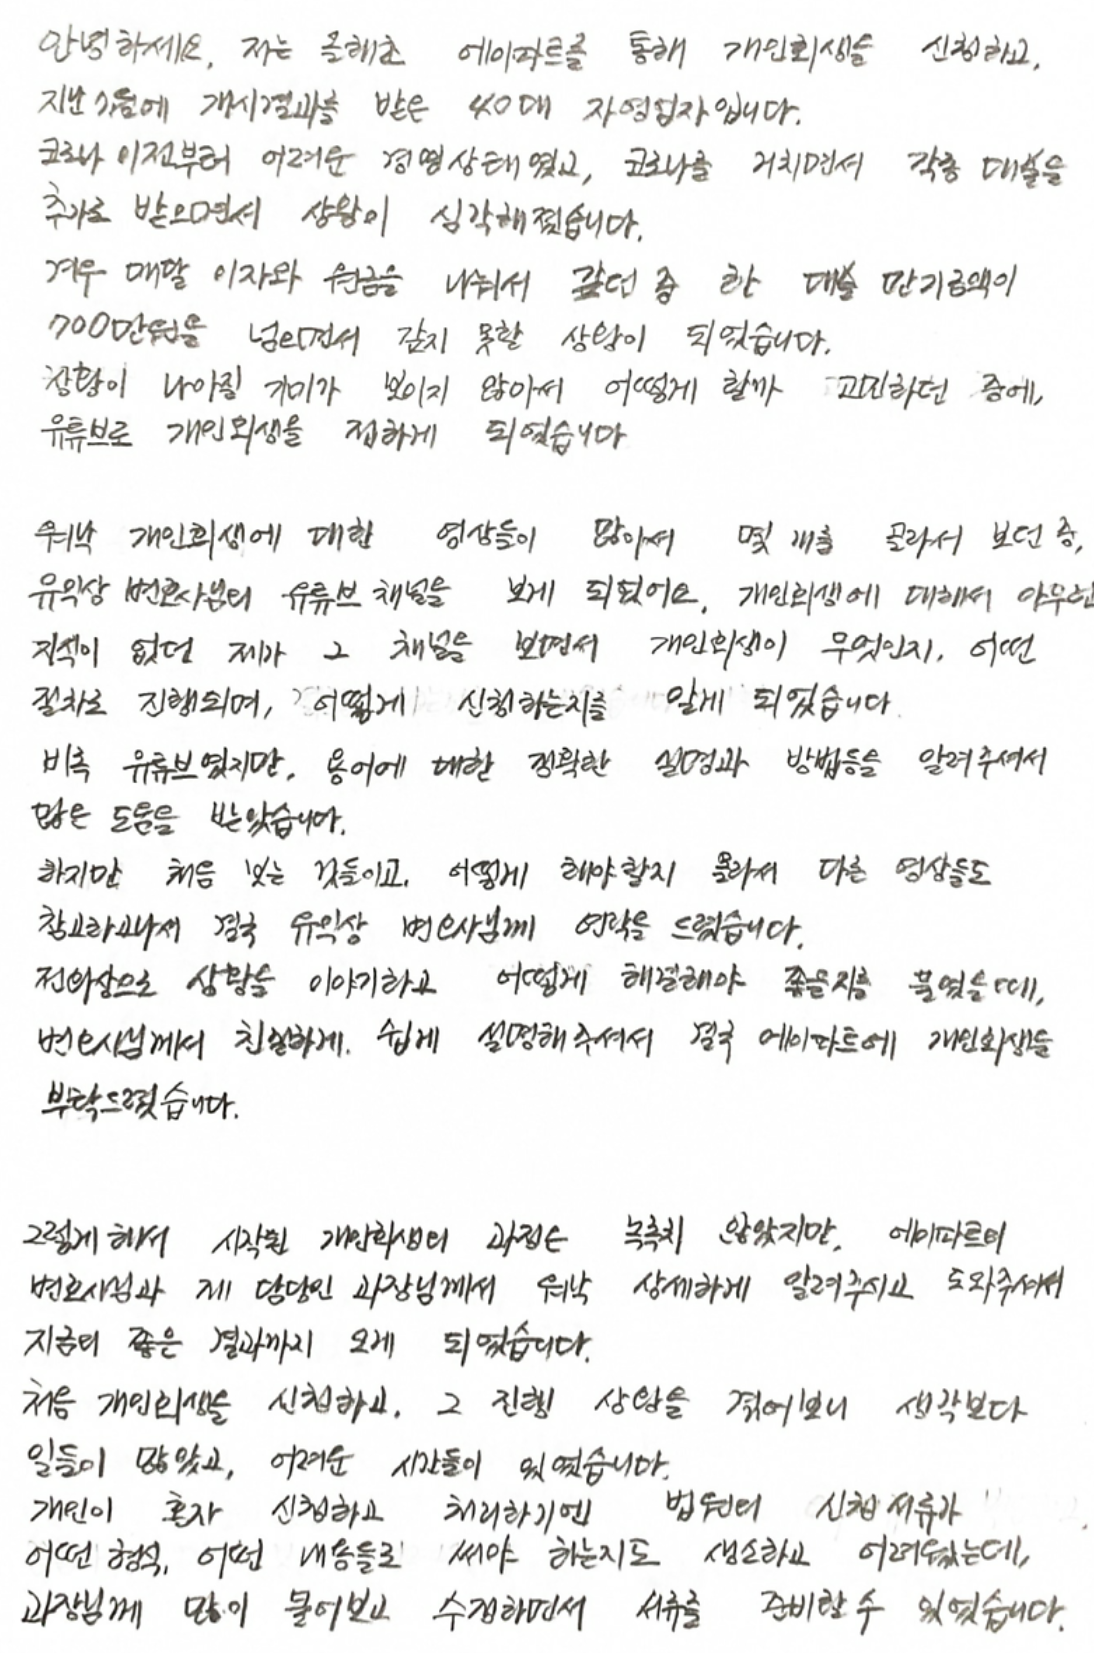 안녕하세요, 저는 올해초 에이파트를 통해 개인회생을 신청하고,
지난 가을에 개시결과를 받은 40대 자영업자입니다.
코로나 이전부터 어려운 경영상태였고, 코로나를 거치면서 각종 대출을
추가로 받으면서 상황이 심각해졌습니다.
겨우 매달 이자와 원금을 나눠서 갚던 중 한 대출 만기금액이
700만원을 넘으면서 갚지 못할 상황이 되었습니다.
상황이 나아질 기미가 보이지 않아서 어떻게 할까 고민하던 중에,
유튜브로 개인회생을 접하게 되었습니다
워낙 개인회생에 대한 영상들이 많아서 몇 개를 골라서 보던 중,
유익상 변호사님의 유튜브 채널을 보게 되었어요. 개인회생에 대해서 아무런
지식이 없던 제가 그 채널을 보면서 개인회생이 무엇인지, 어떤
절차로 진행되며, 어떻게 신청하는지를 알게 되었습니다.
비록 유튜브였지만, 용어에 대한 정확한 설명과 방법등을 알려주셔서
많은 도움을 받았습니다.
하지만 처음 보는 것들이고, 어떻게 해야할지 몰라서 다른 영상들도
참고하고나서 결국 유익상 변호사님께 연락을 드렸습니다.
전화상으로 상황을 이야기하고 어떻게 해결해야 좋을지를 물었을때,
변호사님께서 친절하게, 쉽게 설명해주셔서 결국 에이파트에 개인회생을
부탁드렸습니다.
그렇게 해서 시작된 개인회생의 과정은 녹록치 않았지만, 에이파트의
변호사님과 제 담당인 과장님께서 워낙 상세하게 알려주시고 도와주셔서
지금의 좋은 결과까지 오게 되었습니다.
처음 개인회생을 신청하고, 그 진행 상황을 겪어보니 생각보다
일들이 많았고, 어려운 시간들이 있었습니다.
개인이 혼자 신청하고 처리하기엔 법원의 신청서류가
어떤 형식, 어떤 내용들로 써야 하는지도 생소하고 어려웠는데,
과장님께 많이 물어보고 수정하면서 서류를 준비할 수 있었습니다.